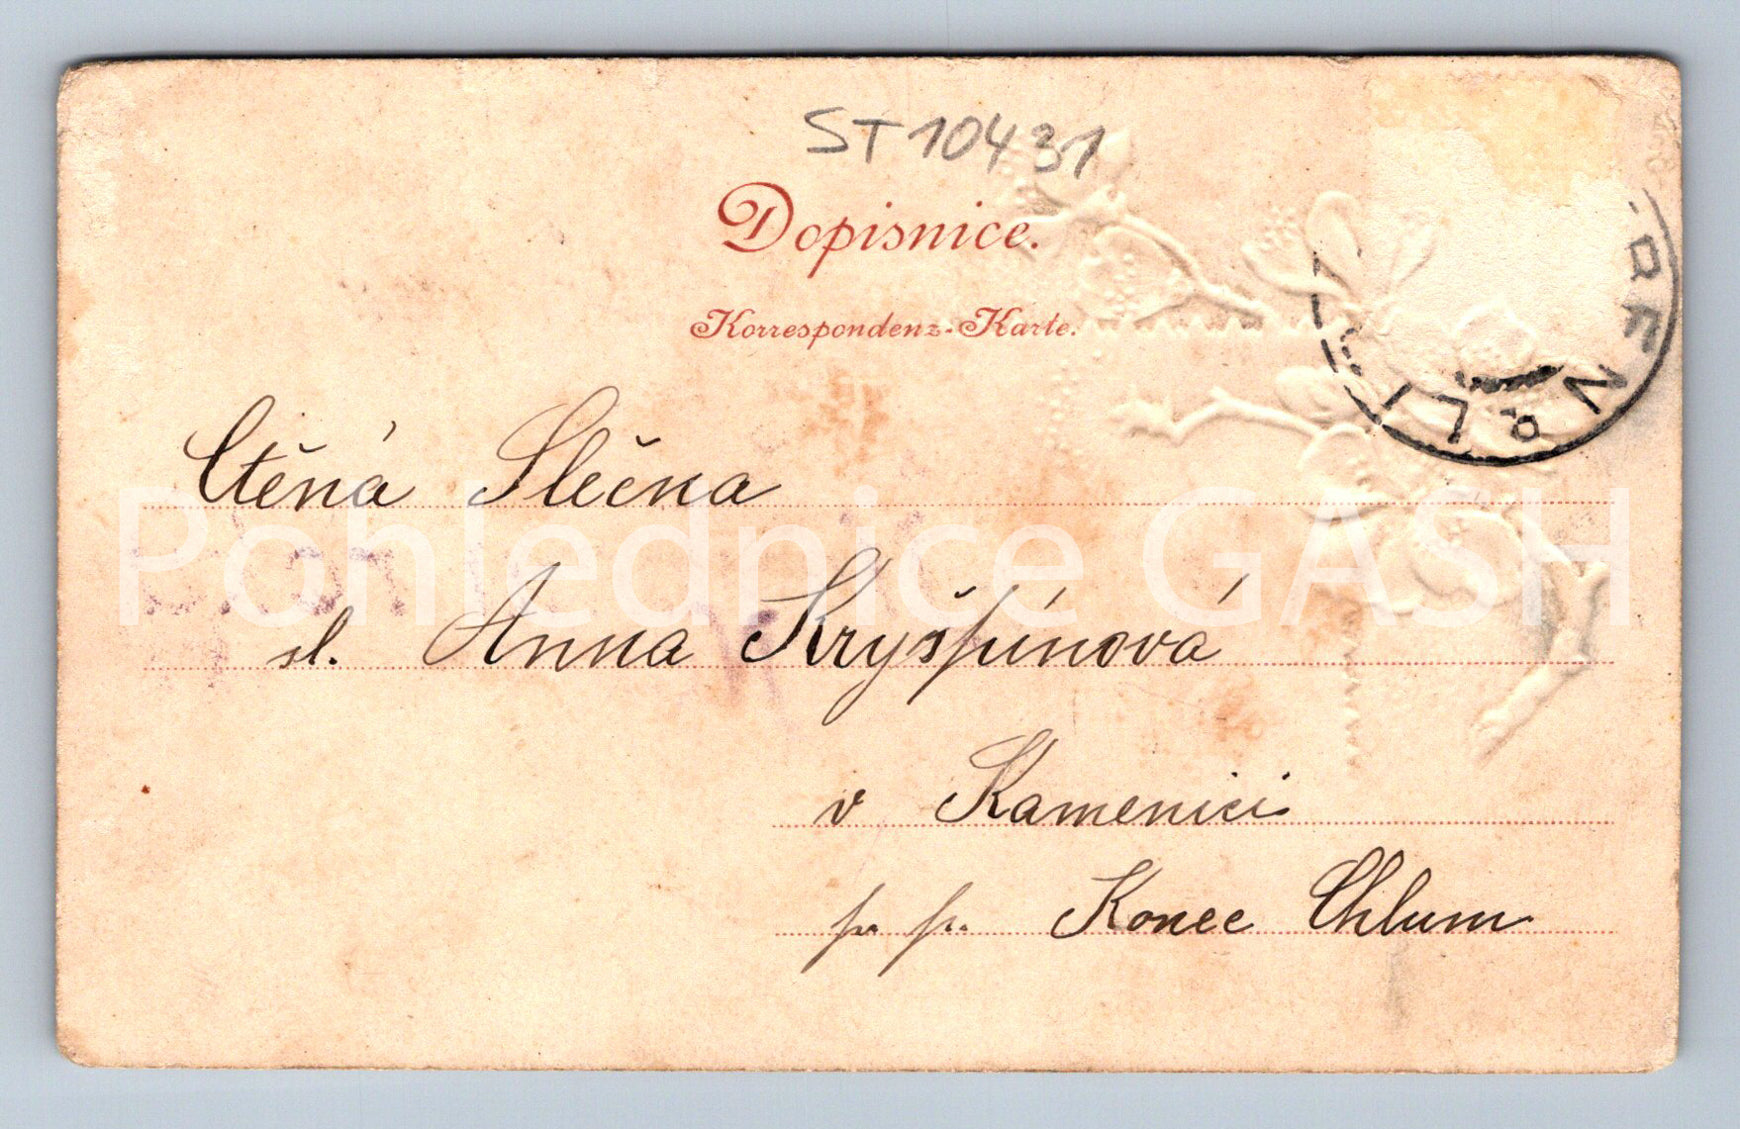 ST10431
Dopisnice.
Korrespondenz-Karte.
Ctěná Slečna
Pohlednice GASH
sl. Anna Kryšpínová
v Kamenici
p. p. Konec Chlum